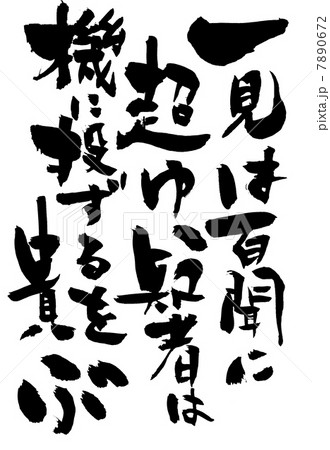 一見は百聞に
超ゆ、知者は
機に投ずるを
貴ぶ
PIXTA
pixta.jp - 7890672